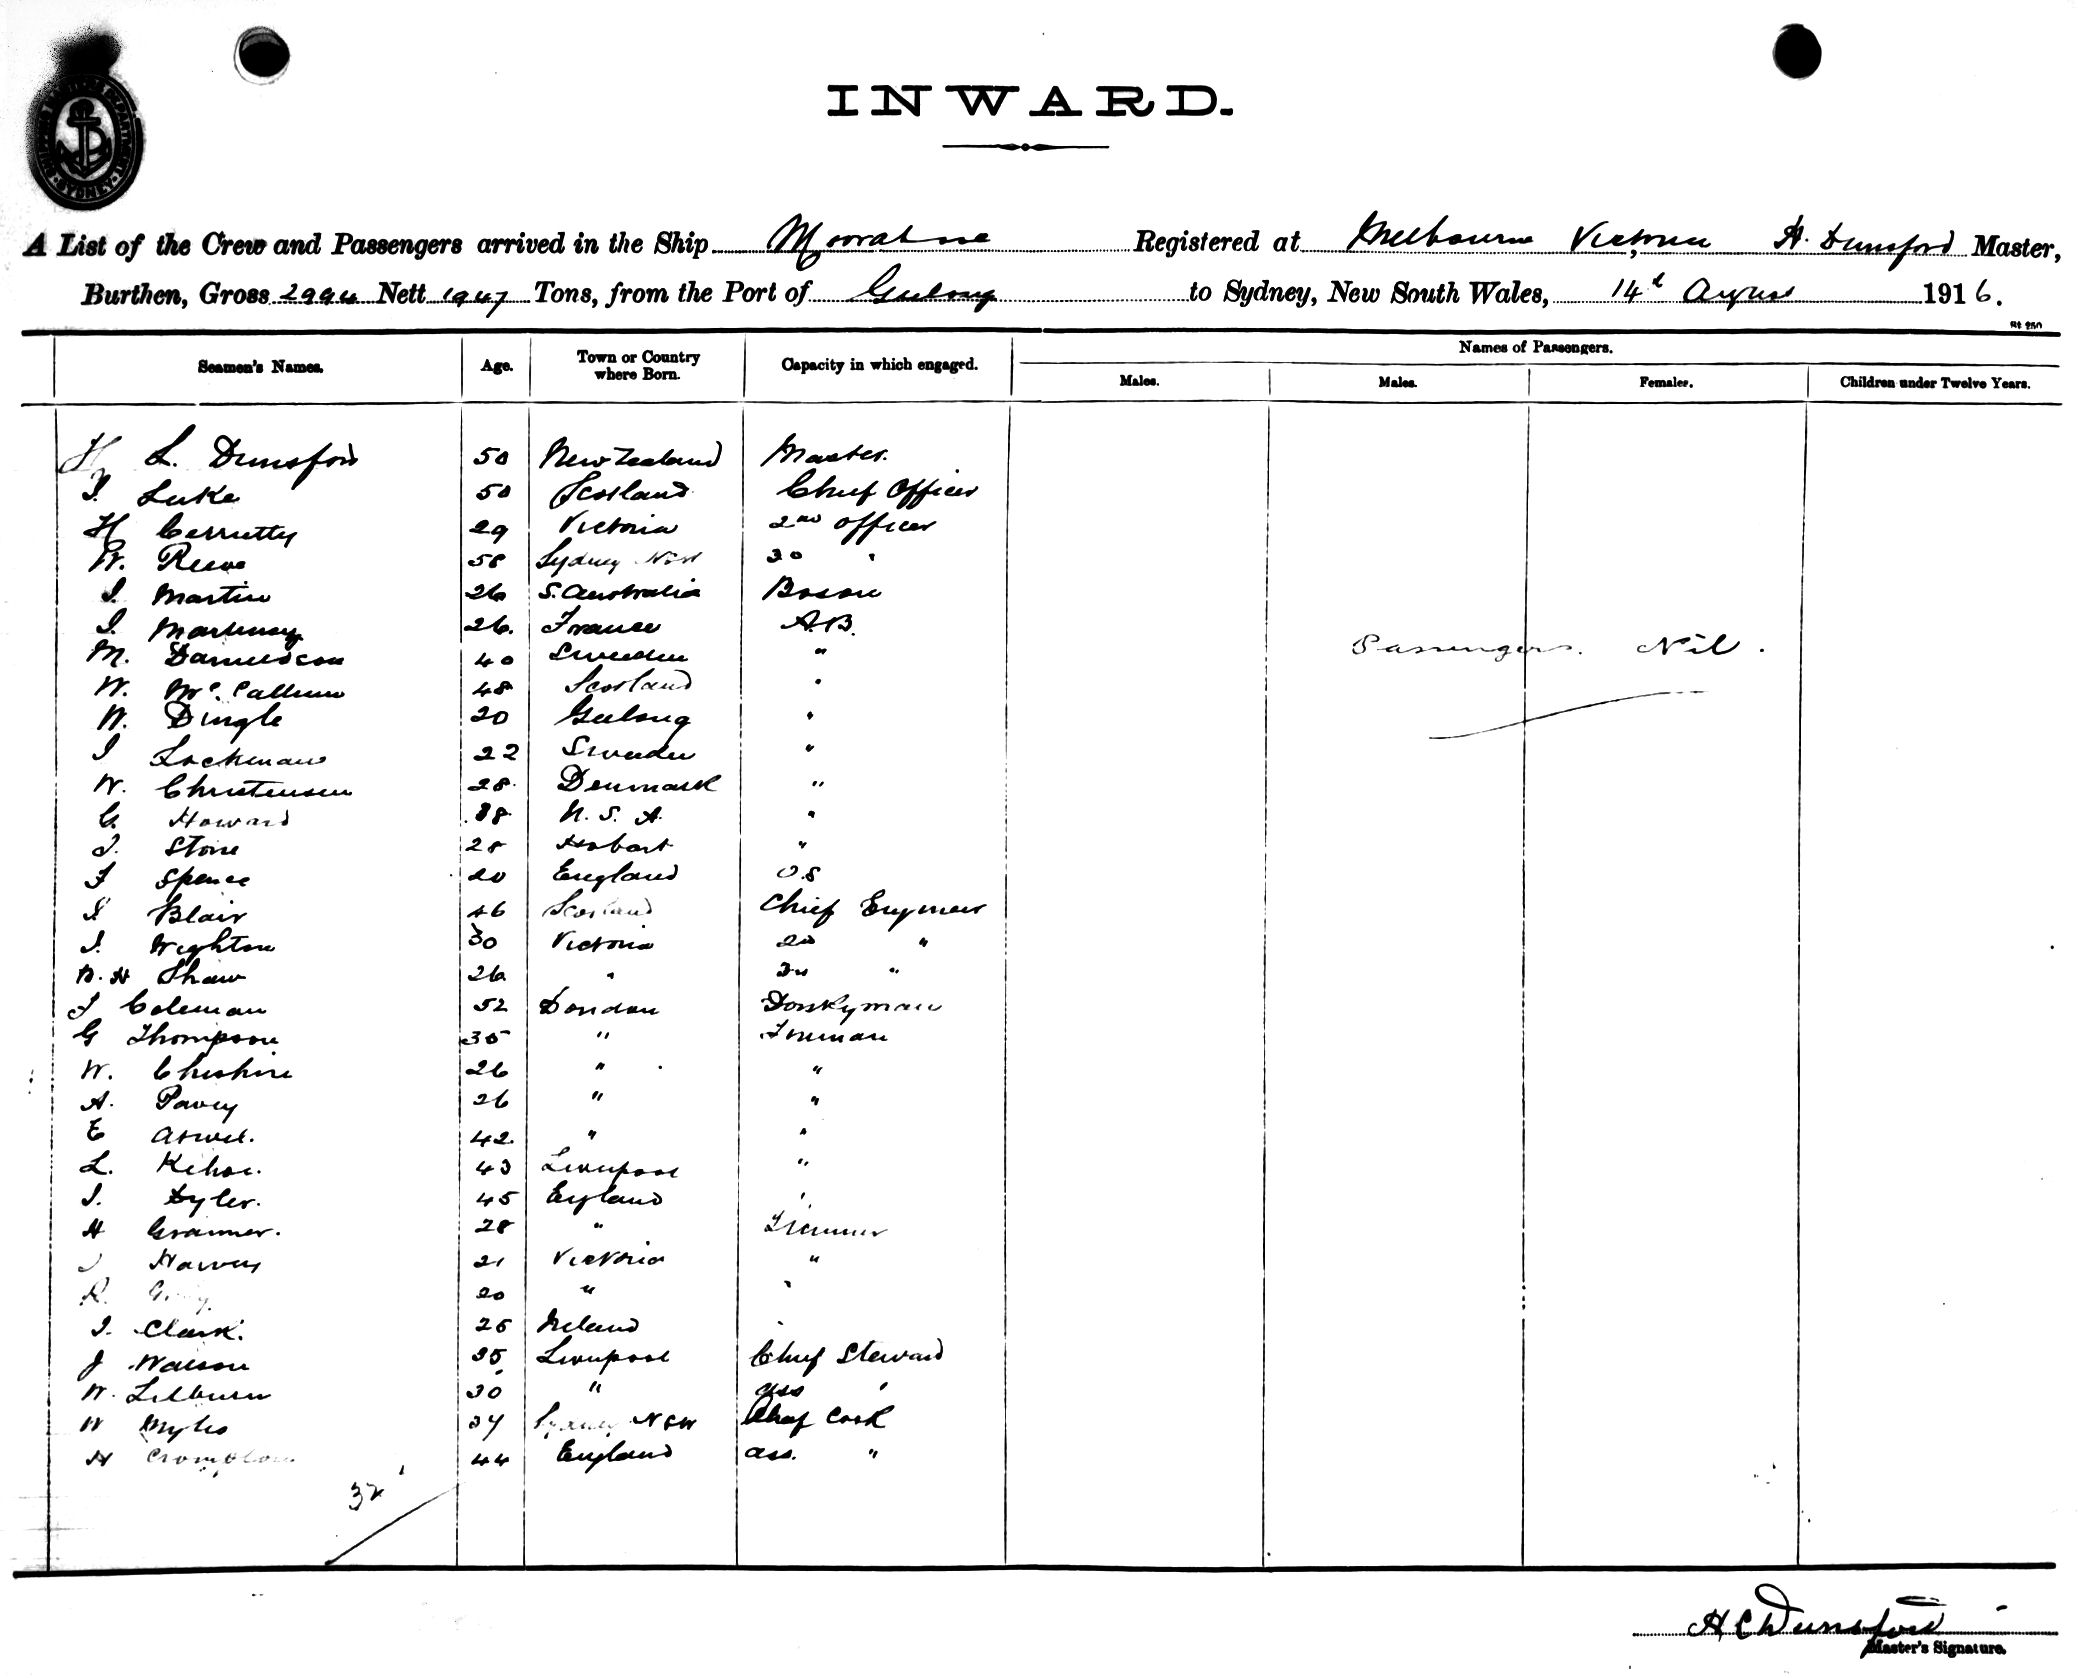 SHIPPING MASTERS DEPARTMENT SYDNEY
INWARD.
A List of the Crew and Passengers arrived in the Ship Registered at Melbourne Victoria, H. Dunsford Master,
Burthen, Gross 2994 Nett 1947 Tons, from the Port of Geelong to Sydney, New South Wales, 14th August 1916.
St 250
Seamen's Names. Age. Town or Country where Born. Capacity in which engaged. Names of Passengers.
Males. Males. Females. Children under Twelve Years.
H L. Dunsford 50 New Zealand Master.
J. Luke 50 Scotland Chief Officer
H Cerrutty 29 Victoria 2nd officer
W. Reeve 58 Sydney NSW 3d "
J. Martin 26 S. Australia Bosun
J. 26. France A.B.
M. Danielson 40 Sweden "
W. McCallum 48 Scotland "
W. Dingle 20 Geelong "
J Lockmans 22 Sweden "
W. Christensen 28. Denmark "
C. Howard 38. U.S.A. "
J. Stone 28 Hobart "
F Spence 20 England O.S
J Blair 46 Scotland Chief Engineer
J. Wighton 30 Victoria 2d "
H Shaw 26 " 3d "
J Coleman 52 London Donkyman
G Thompson 35 " Fireman
W. Cheshire 26 " "
A. Pavey 26 " "
E 42. " "
L. Kehoe. 43 Liverpool "
J. Tyler. 45 England "
H 28 " Trimmer
J Harvey 21 Victoria "
R. 20 " "
J. Clark. 25 Ireland "
J Watson 35 Liverpool Chief Steward
W. Lilburn 30 " ass "
W Myles 34 Sydney NSW Chief Cook
H Crompton 44 England ass. "
Passengers. Nil.
32
H C Dunsford
Master's Signature.